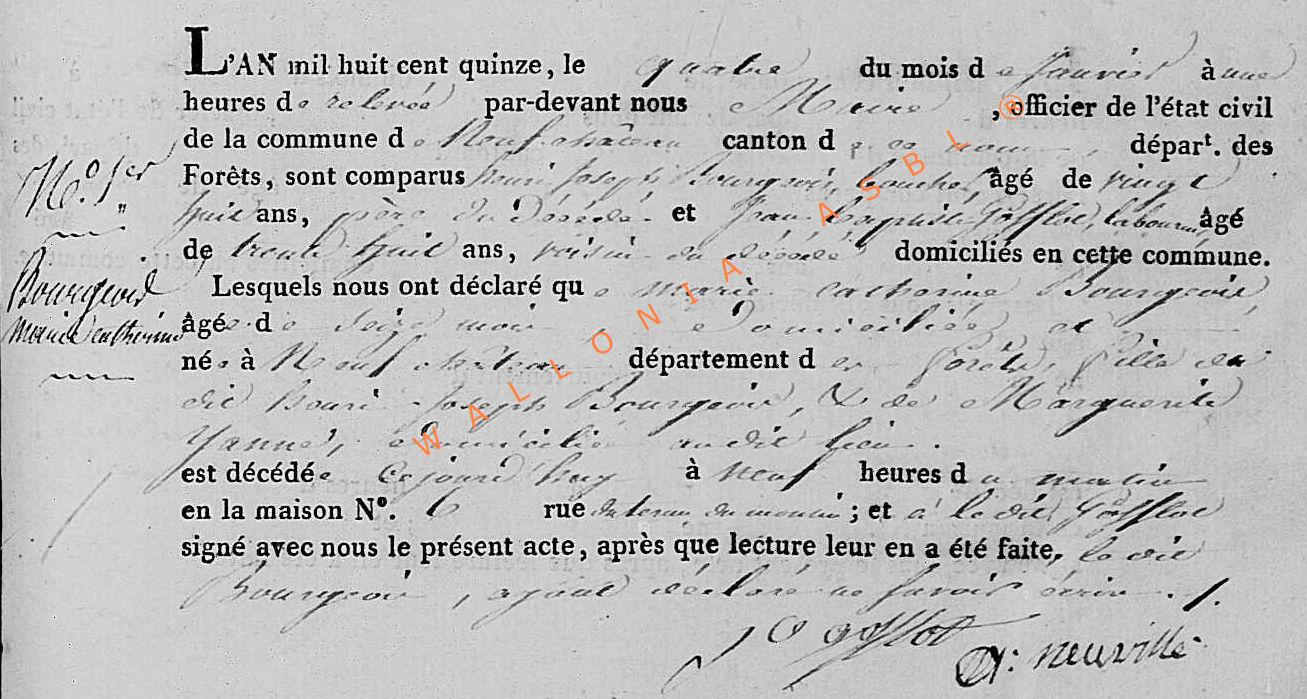 L'AN mil huit cent quinze, le quatre du mois de Janvier à une
heures de relevée par-devant nous Maire, officier de l'état civil
de la commune de Neufchâteau canton de ce nom, départ. des
Nº. 1er
Forêts, sont comparus henri Joseph Bourgeois, boucher, âgé de vingt
huit ans, père du décédé et Jean Baptiste Gofflot, laboureur, âgé
de trente huit ans, voisin du décédé domiciliés en cette commune.
Bourgeois
marie catherine
Lesquels nous ont déclaré que marie catherine Bourgeois,
âgée de seize mois domiciliée et
née à Neufchâteau département des forêts, fille du
dit henri Joseph Bourgeois, & de Marguerite
domiciliés au dit lieu.
est décédée cejourd'huy à neuf heures du matin
en la maison Nº. 6 rue du moulin; et a le dit Gofflot
signé avec nous le présent acte, après que lecture leur en a été faite, le dit
Bourgeois, ayant déclaré ne savoir écrire.
Gofflot
neuville
WALLONIA ASBL ®